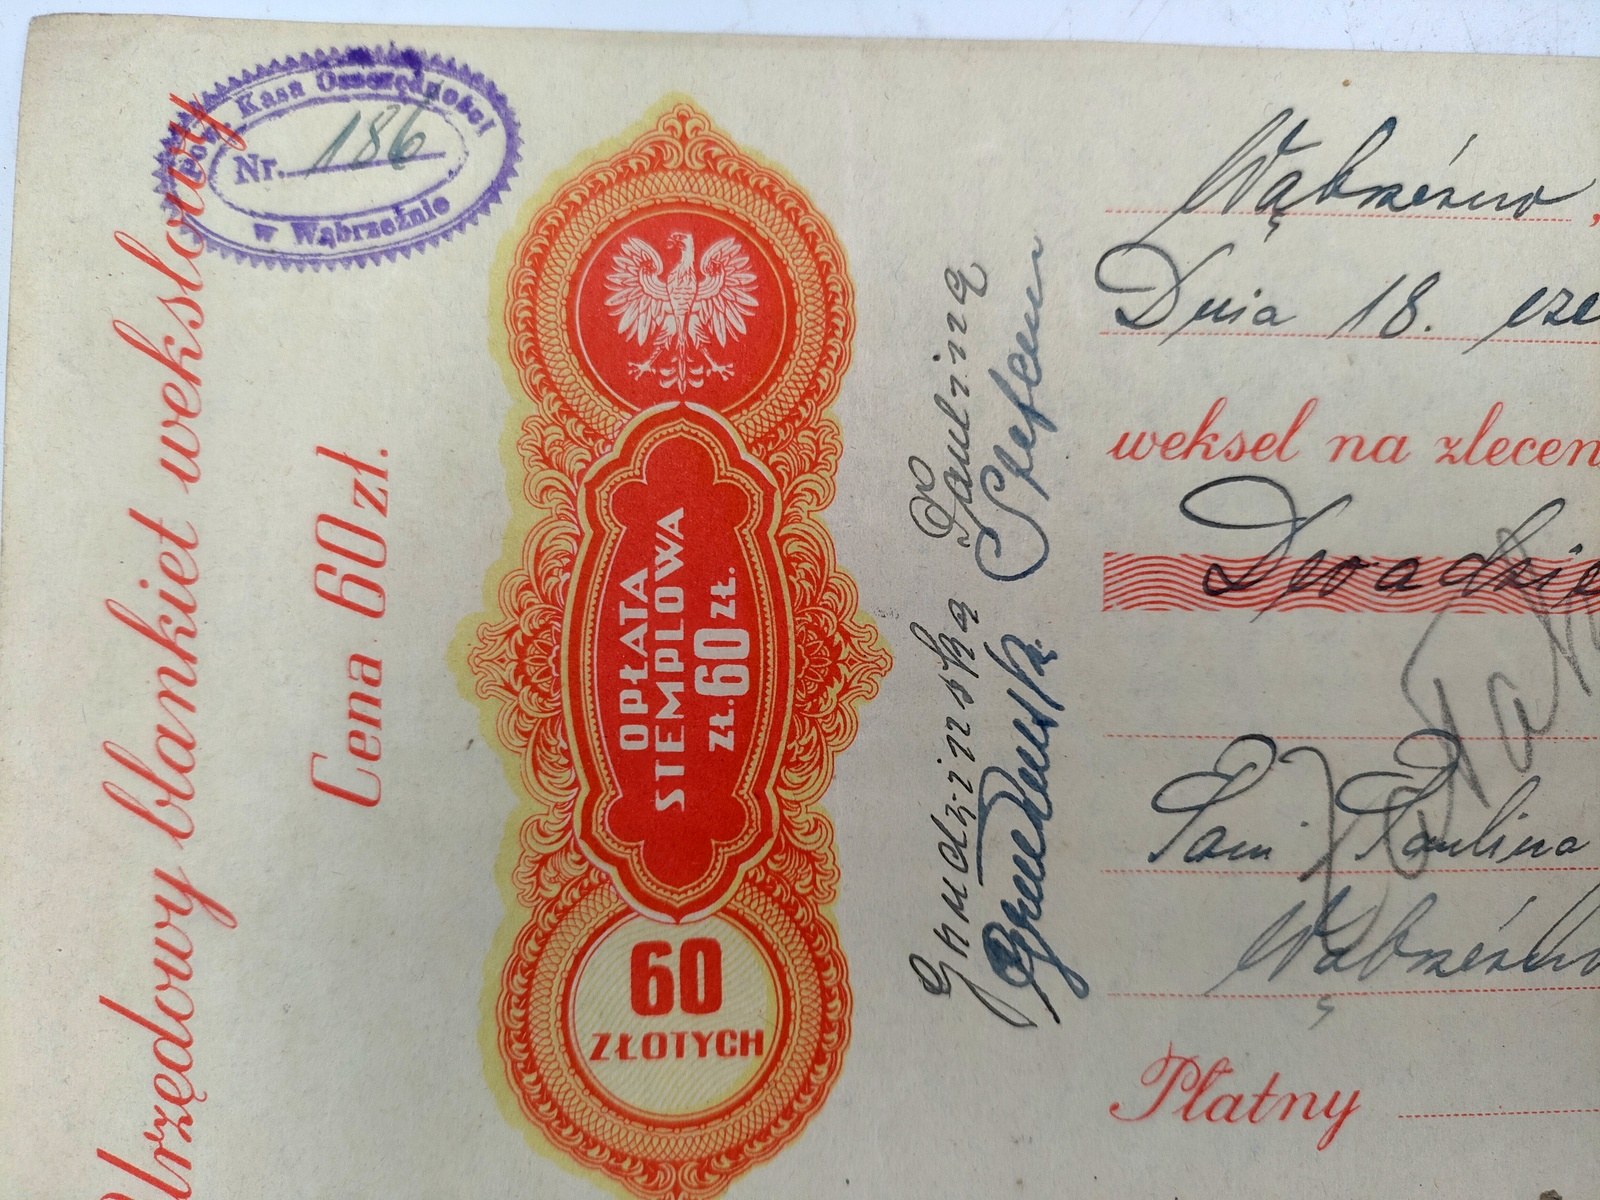 Urzędowy blankiet wekslowy
Cena 60 zł.
Pow. Kasa Oszczędności
Nr. 186
w Wąbrzeźnie
OPŁATA
STEMPLOWA
ZŁ. 60 ZŁ.
60
ZŁOTYCH
Grudzińska Paulina
Grudzińska Stefan
Wąbrzeźno,
Dnia 18. cze
weksel na zlecen
Dwadzie
Pani Paulina
Wąbrzeźno
Płatny